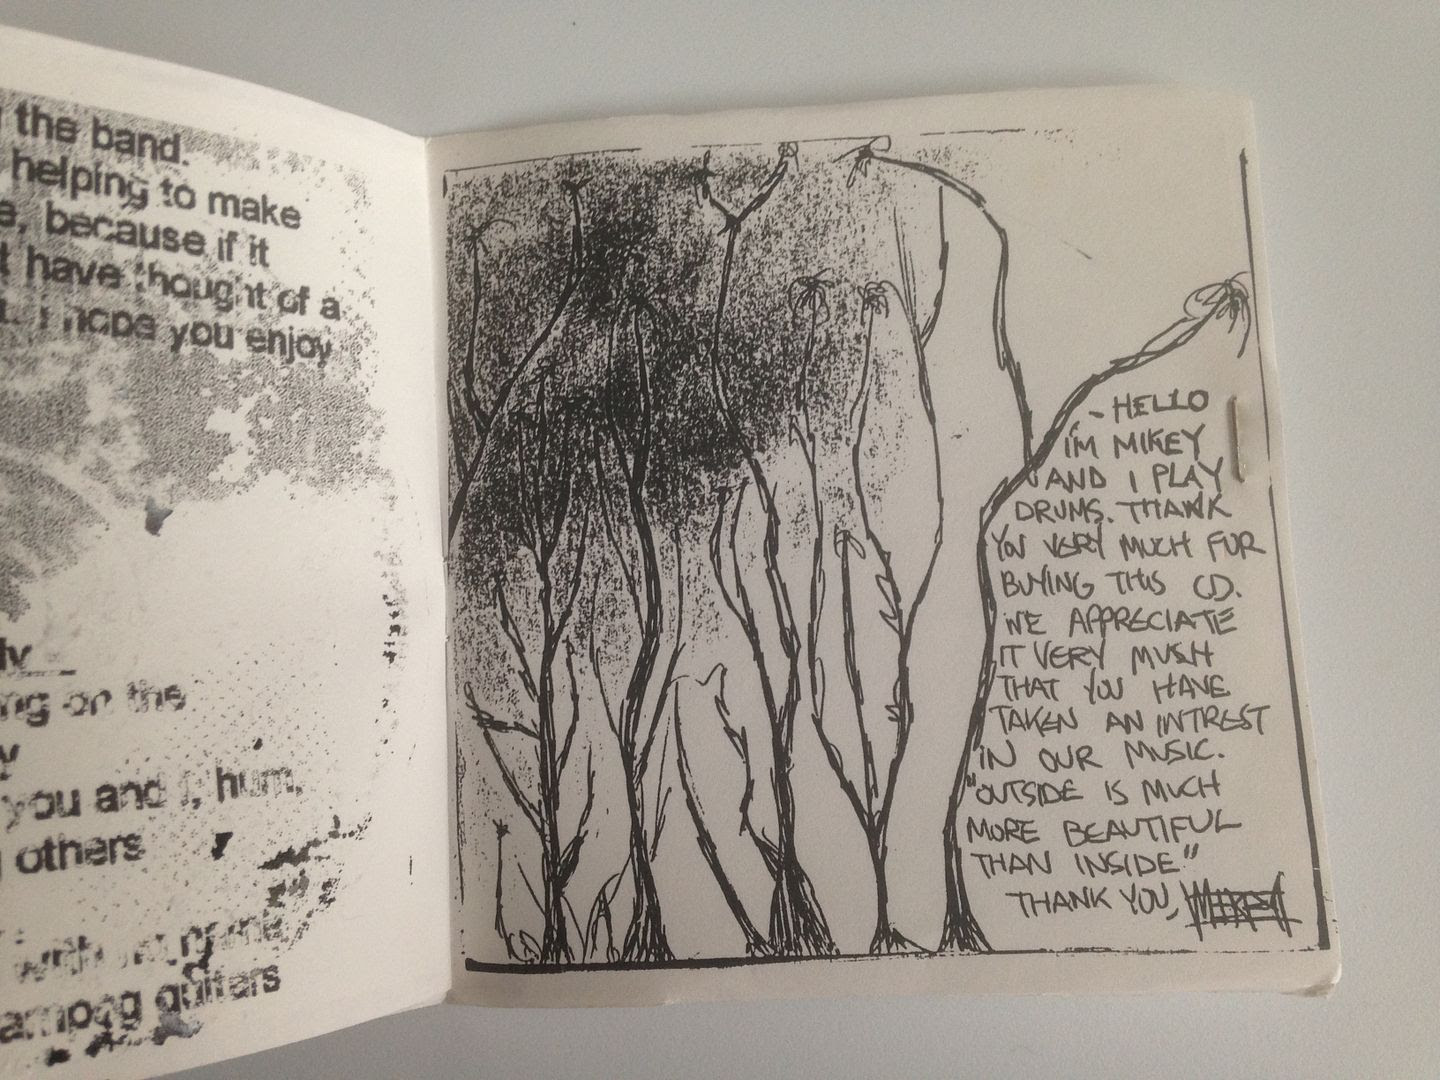 the band.
helping to make
because if it
have thought of a
I hope you enjoy
ng on the
you and I, hum,
others
guitars
- HELLO
I'M MIKEY
AND I PLAY
DRUMS. THANK
YOU VERY MUCH FUR
BUYING THIS CD.
WE APPRECIATE
IT VERY MUSH
THAT YOU HAVE
TAKEN AN INTREST
IN OUR MUSIC.
"OUTSIDE IS MUCH
MORE BEAUTIFUL
THAN INSIDE"
THANK YOU,